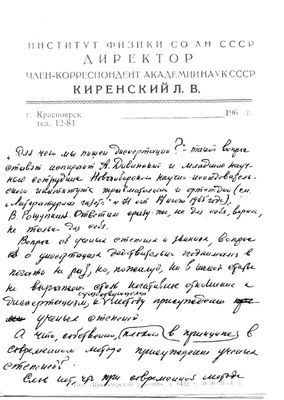 ИНСТИТУТ ФИЗИКИ СО АН СССР
ДИРЕКТОР
ЧЛЕН-КОРРЕСПОНДЕНТ АКАДЕМИИ НАУК СССР
КИРЕНСКИЙ Л. В.
г. Красноярск 196 г.
тел. 12-84
„Для чего мы пишем диссертацию?" – такой вопрос
ставят аспирант А. Дивинский и младший науч-
ный сотрудник Новосибирского научно-исследователь-
ского института травматологии и ортопедии (см.
„Литературную газету" № 71 от июня 1965 года)
В. Рощупкин. Ответим сразу же, не для себя, вернее,
не только для себя.
Вопрос об ученых степенях и званиях, вопрос
о диссертациях действительно поднимался в
печати не раз, но, пожалуй, ни в какой
не выражалось столь негативное отношение к
диссертациям, к существующему методу присуждения
ученых степеней.
А что, собственно, плохого в принципе в
современном методе присуждения ученых
степеней?
нет, что при современной методе